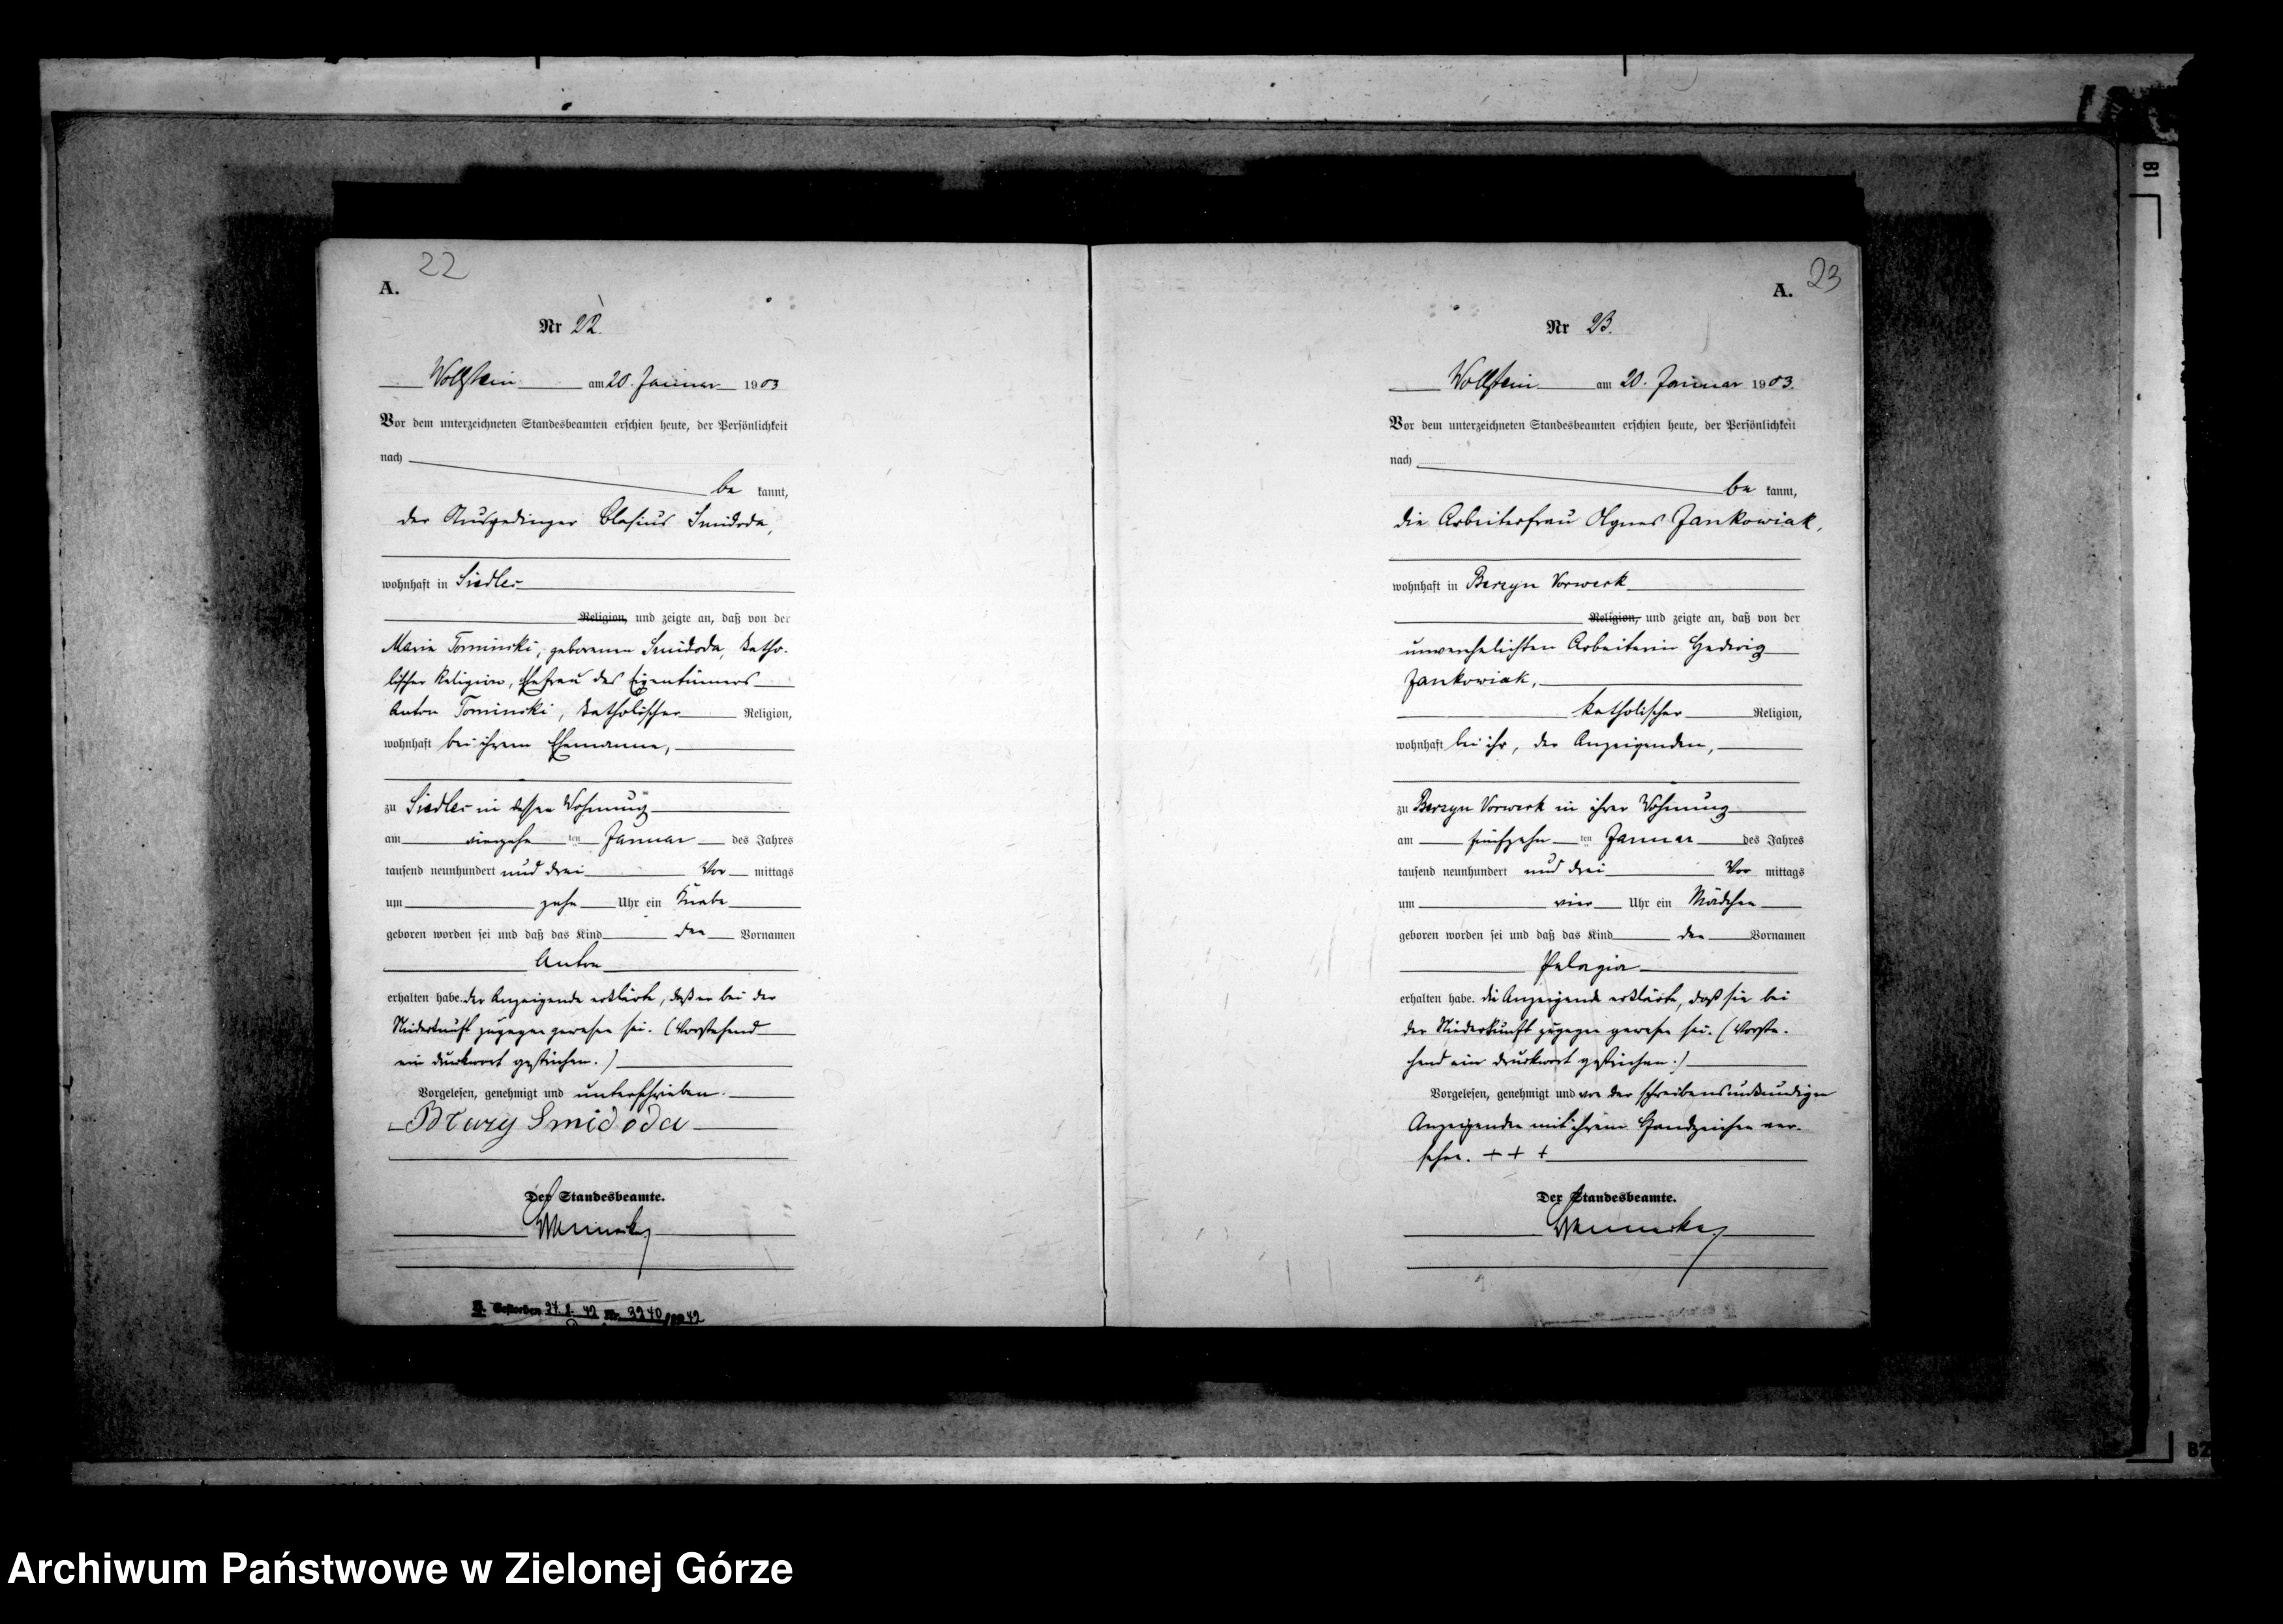 22
A.
Nr 22.
Wollstein am 20. Januar 1903
Vor dem unterzeichneten Standesbeamten erschien heute, der Persönlichkeit
nach
be kannt,
der Ausgedinger Blasius Smidoda,
wohnhaft in Siedlec
Religion, und zeigte an, daß von der
Marie Tominski, geborenen Smidoda, katho-
lischer Religion, Ehefrau des Eigentümers
Anton Tominski, katholischer Religion,
wohnhaft bei ihrem Ehemanne,
zu Siedlec in dessen Wohnung
am vierzehn ten Januar des Jahres
tausend neunhundert und drei Vor mittags
um zehn Uhr ein Knabe
geboren worden sei und daß das Kind den Vornamen
Anton
erhalten habe. Der Anzeigende erklärte, daß er bei der
Niederkunft zugegen gewesen sei. (Vorstehend
ein Druckwort gestrichen.)
Vorgelesen, genehmigt und unterschrieben.
Blazy Smidoda
Der Standesbeamte.
Gestorben 27. 2. 42 Nr. 3240 /1942
23
A.
Nr 23.
Wollstein am 20. Januar 1903.
Vor dem unterzeichneten Standesbeamten erschien heute, der Persönlichkeit
nach
be kannt,
die Arbeiterfrau Agnes Jankowiak,
wohnhaft in Berzyn Vorwerk
Religion, und zeigte an, daß von der
unverehelichten Arbeiterin Hedwig
Jankowiak,
katholischer Religion,
wohnhaft bei ihr, der Anzeigenden,
zu Berzyn Vorwerk in ihrer Wohnung
am fünfzehn ten Januar des Jahres
tausend neunhundert und drei Vor mittags
um vier Uhr ein Mädchen
geboren worden sei und daß das Kind den Vornamen
Pelagia
erhalten habe. Die Anzeigende erklärte, daß sie bei
der Niederkunft zugegen gewesen sei. (Vorste-
hend ein Druckwort gestrichen.)
Vorgelesen, genehmigt und von der schreibensunkundigen
Anzeigenden mit ihrem Handzeichen ver-
sehen. + + +
Der Standesbeamte.
B1
B2
Archiwum Państwowe w Zielonej Górze